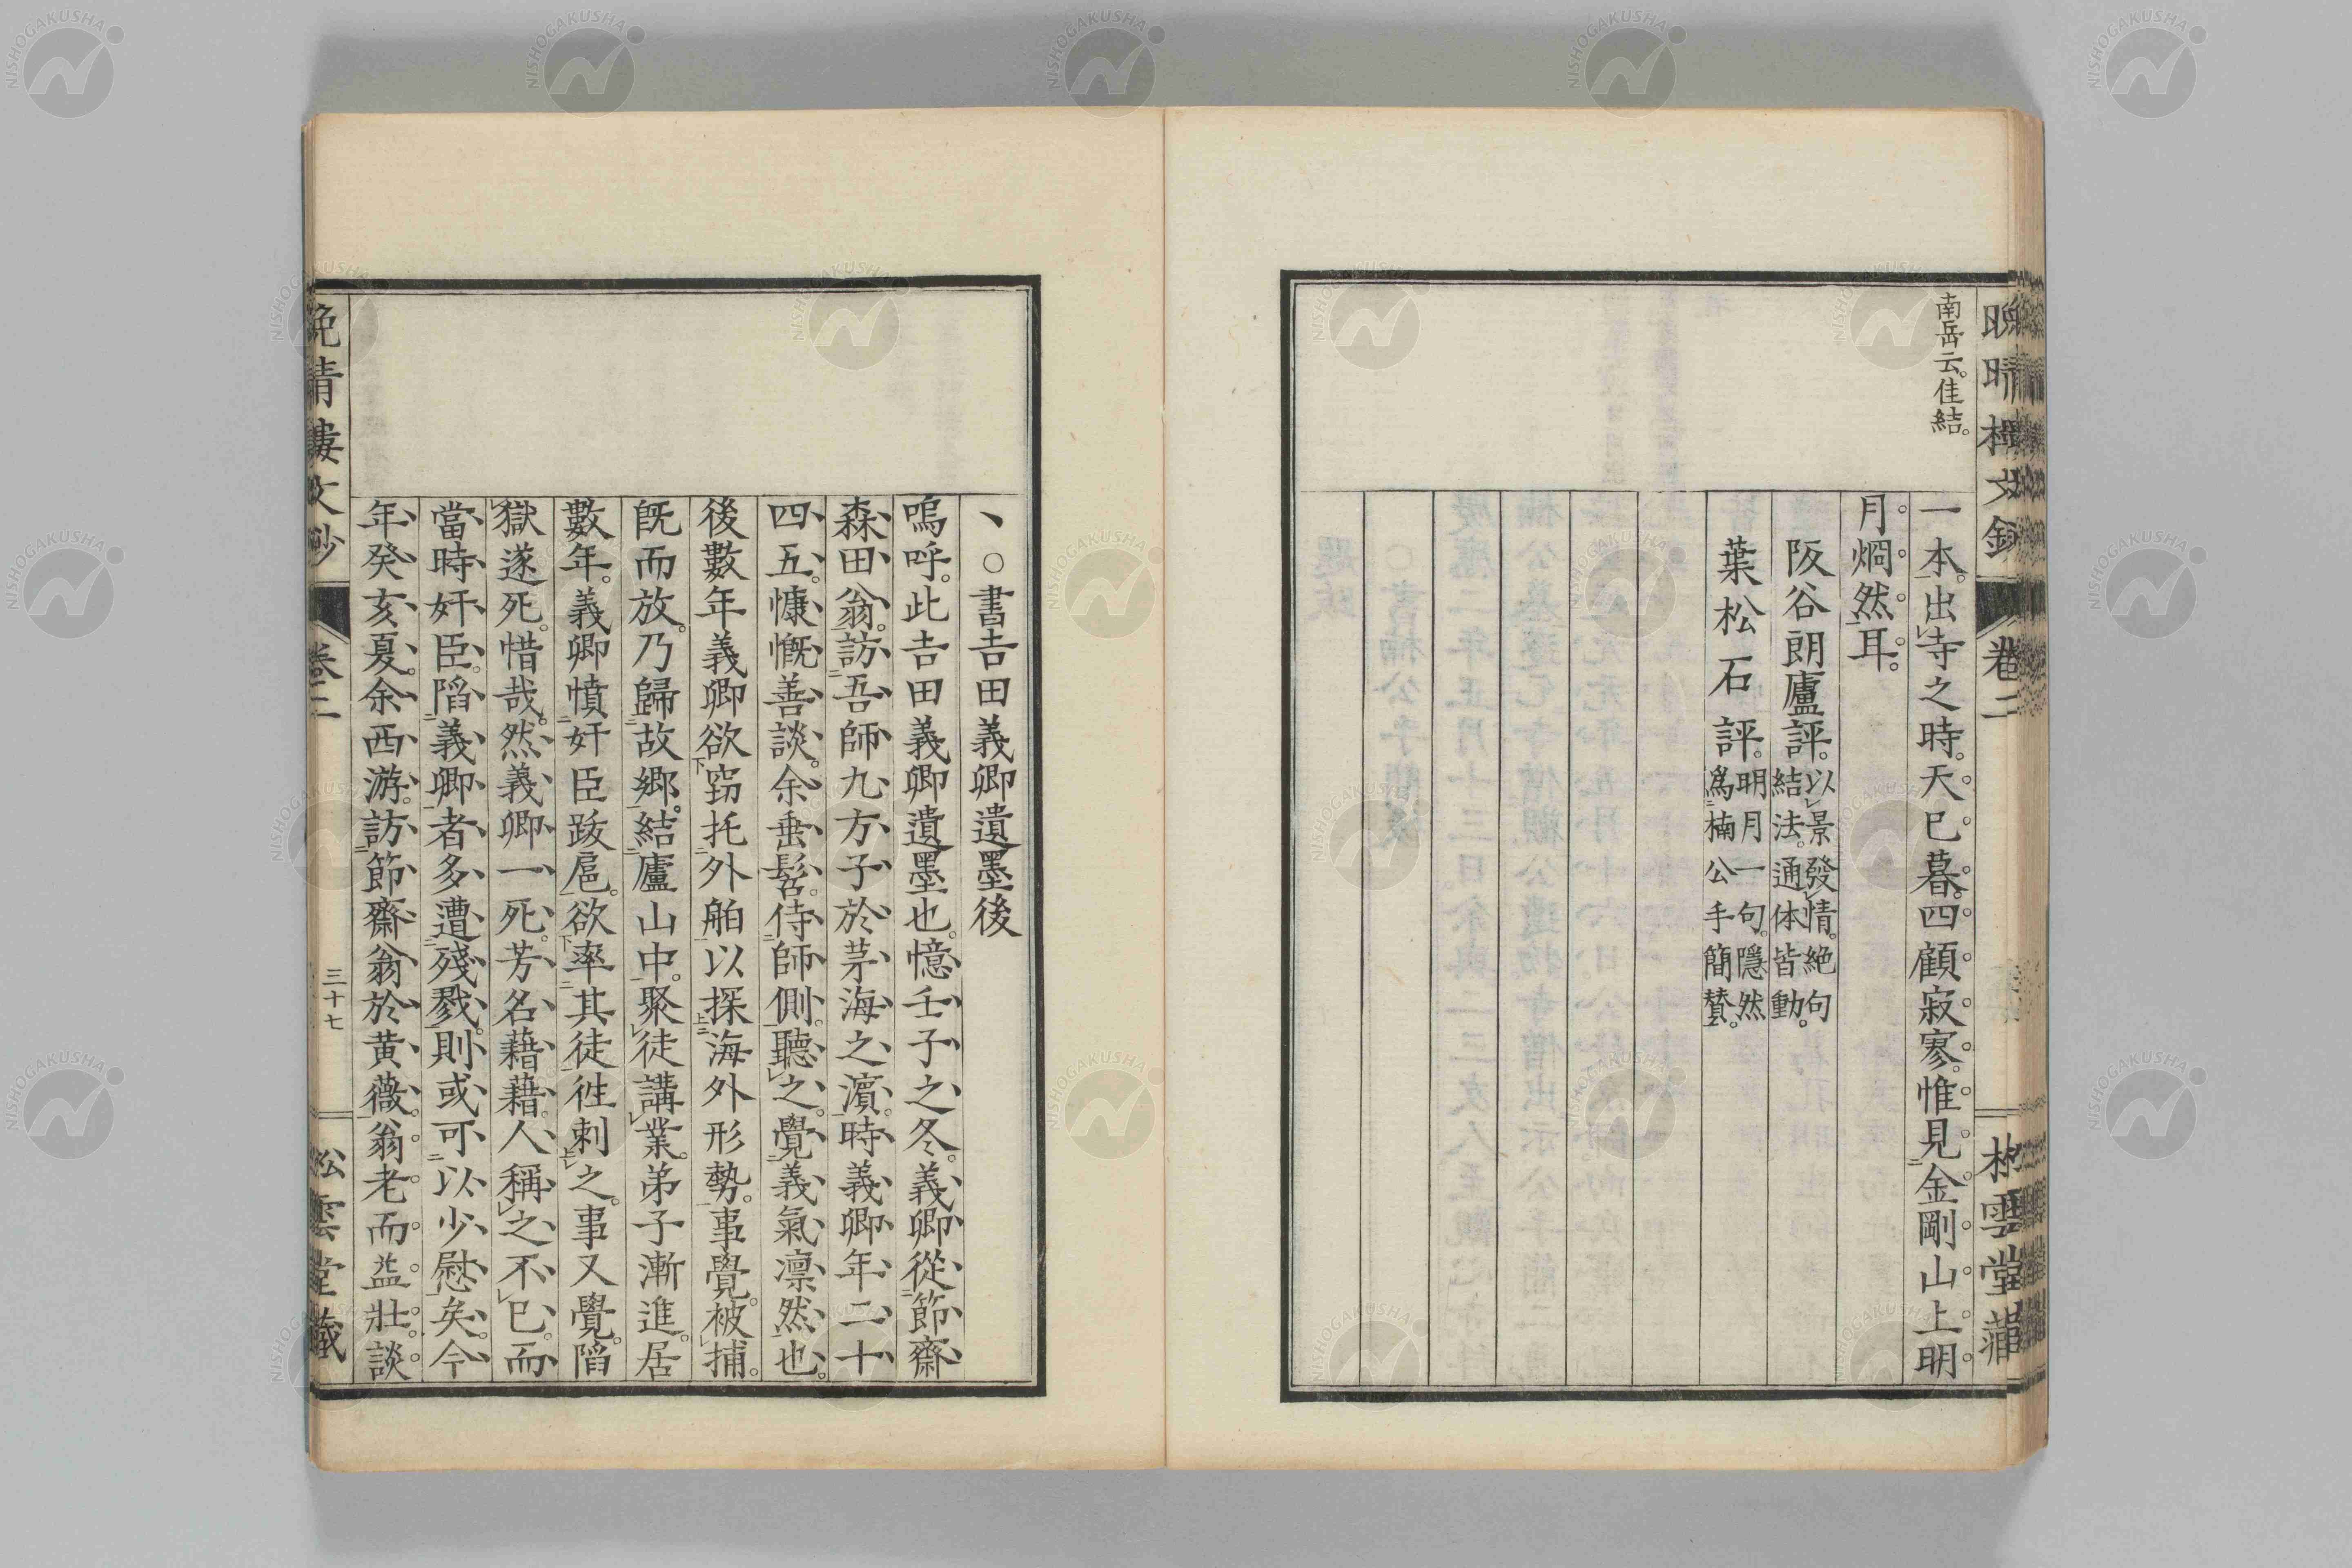 晩晴楼文鈔
卷二
松雲堂藏
南岳云。佳結。
一本。出寺之時。天已暮。四顧寂寥。惟見金剛山上明
月烱然耳。
阪谷朗廬評。以景發情。絶句
結法。通体皆動。
葉松石評。明月一句。隱然
爲楠公手簡賛。
、○書吉田義卿遺墨後
嗚呼。此吉田義卿遺墨也。憶壬子之冬。義卿從節齋
森田翁。訪吾師九方子於茅海之濵。時義卿年二十
四五。慷慨善談。余垂髫。侍師側。聽之。覺義氣凛然也。
後數年義卿欲窃托外舶以探海外形勢。事覺。被捕。
既而放。乃歸故郷。結廬山中。聚徒講業。弟子漸進。居
數年。義卿憤奸臣跋扈。欲率其徒徃刺之。事又覺。陷
獄遂死。惜哉。然義卿一死。芳名藉藉。人稱之不已。而
當時奸臣。陷義卿者多遭殘戮。則或可以少慰矣。今
年癸亥夏。余西游。訪節齋翁於黄薇。翁老而益壯。談
晩晴樓文鈔
卷二
三十七
松雲堂藏
NISHOGAKUSHA